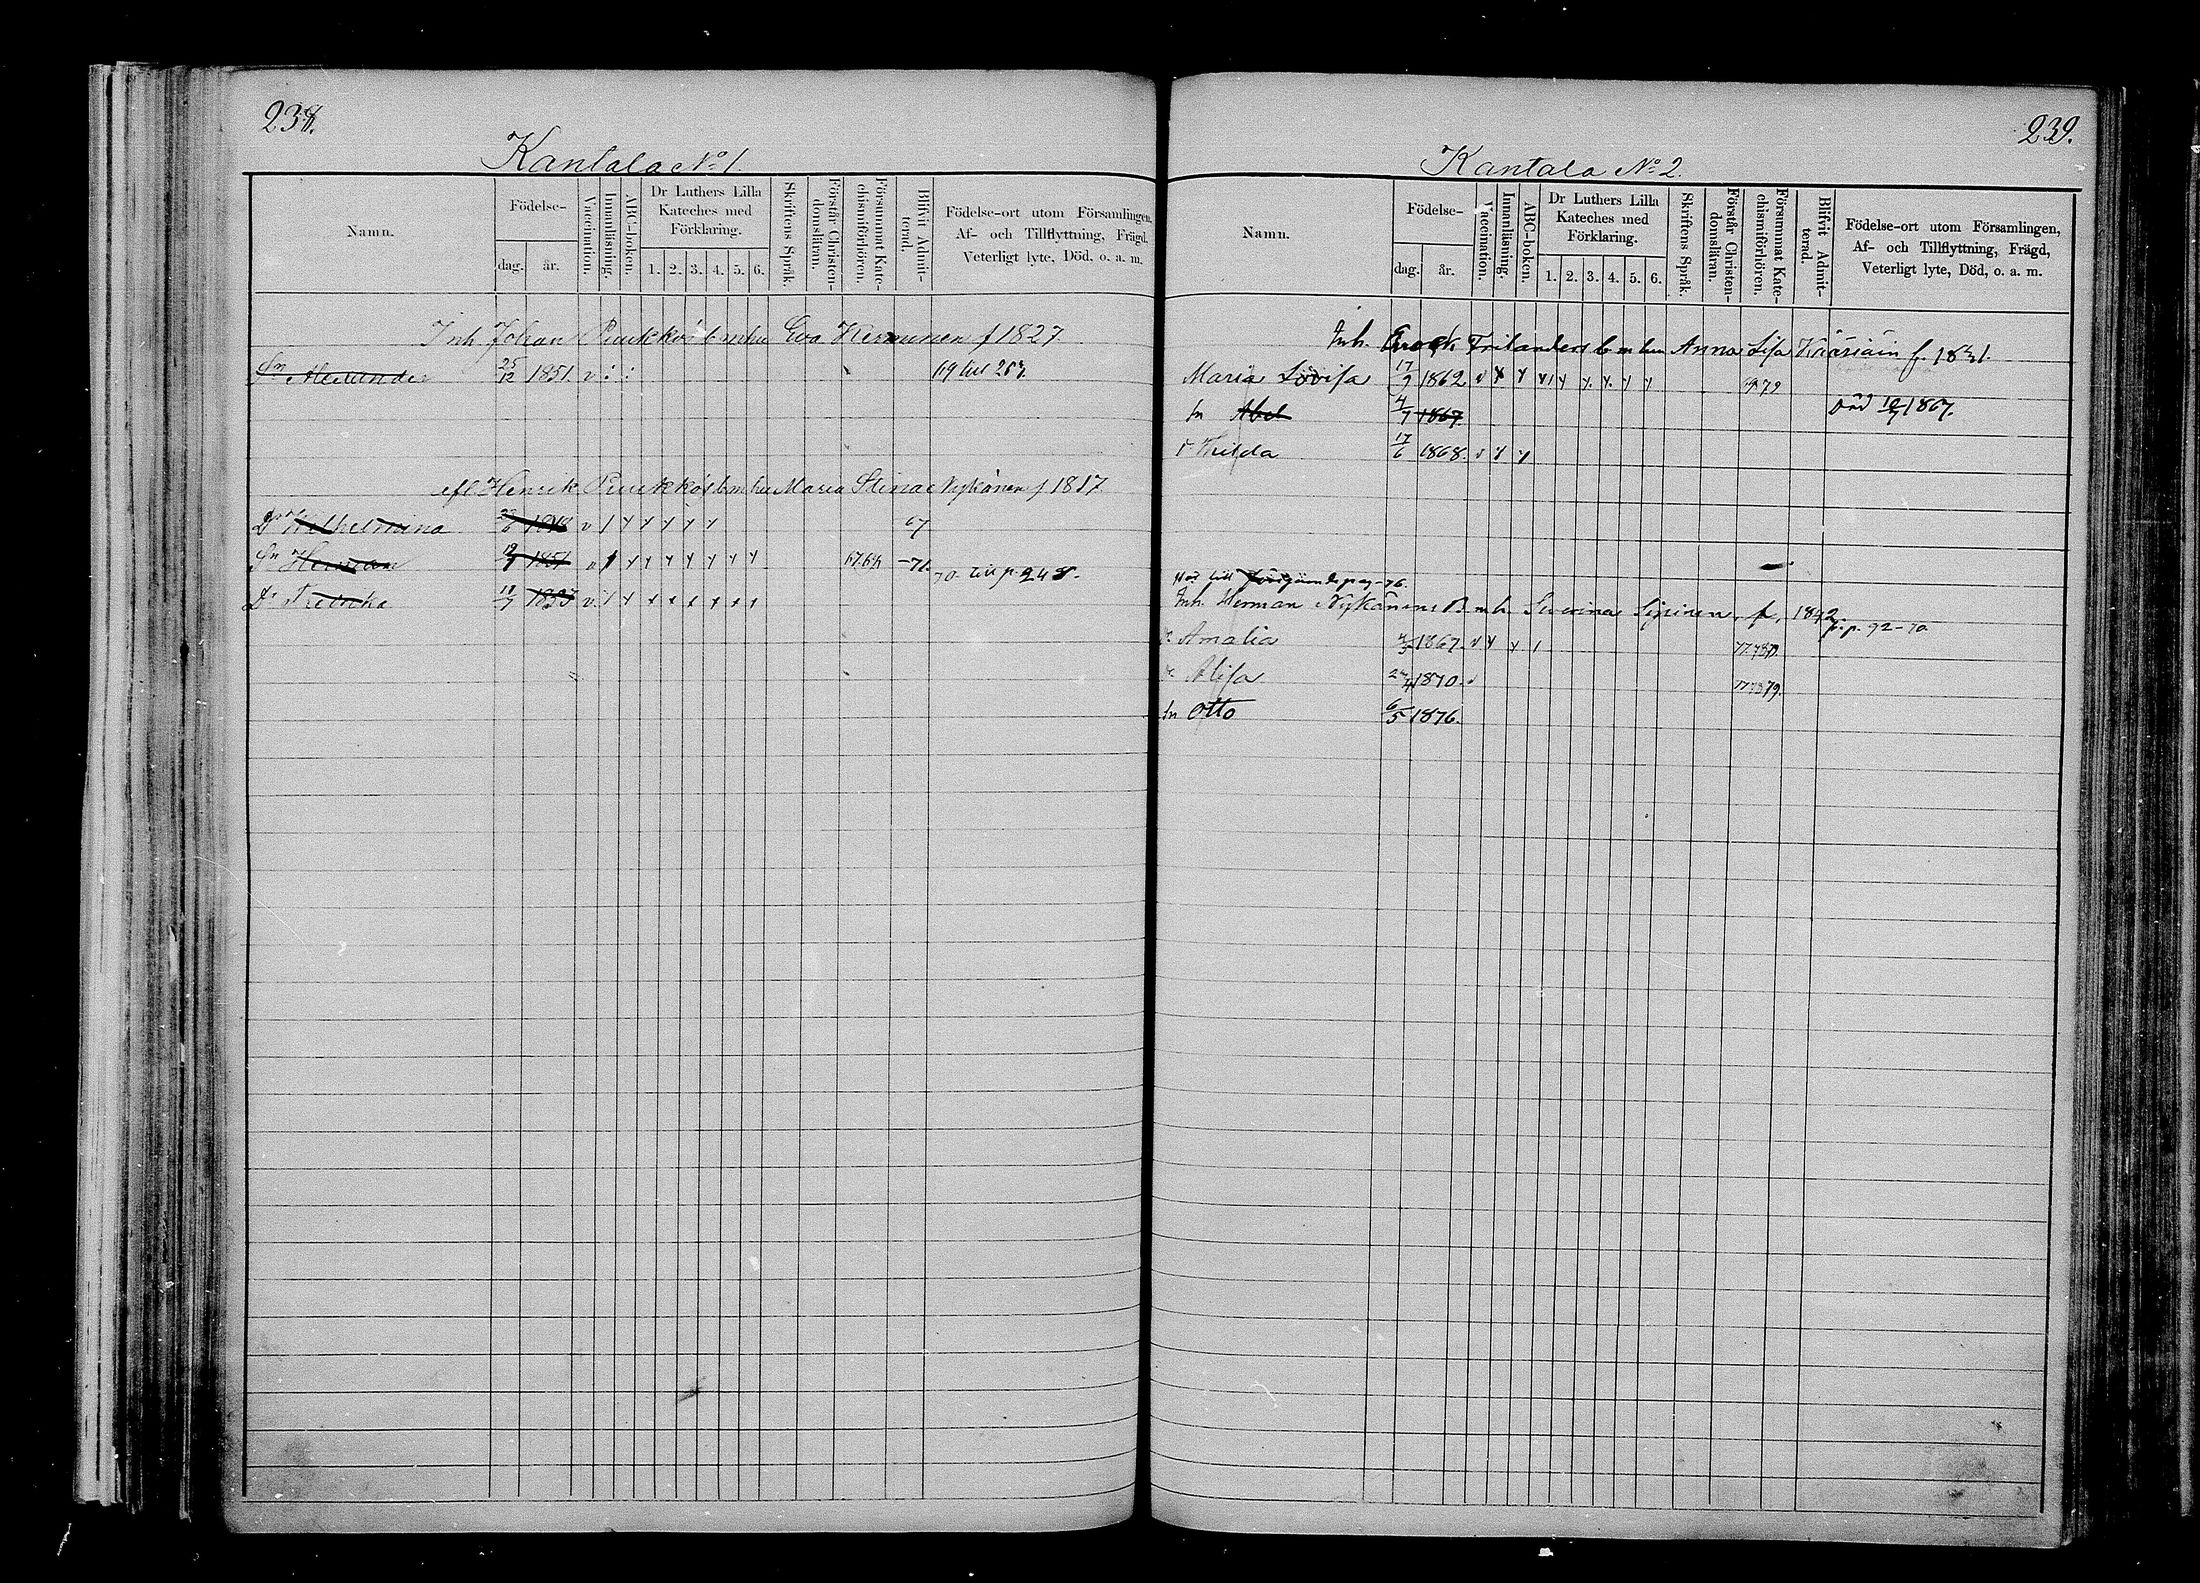 238.
Kantala No 1.
Namn.
Födelse-
dag.
år.
Vaccination.
Innanläsning.
ABC-boken.
Dr Luthers Lilla
Kateches med
Förklaring.
1. 2. 3. 4. 5. 6.
Skriftens Språk.
Förstår Christen-
domsläran.
Försummat Kate-
chismiförhören.
Blifvit Admit-
terad.
Födelse-ort utom Församlingen,
Af- och Tillflyttning, Frägd,
Veterligt lyte, Död, o. a. m.
Inh. Johan Puukkös b m hu Eva Hermunen f 1827
Sn Alexander 25/12 1851. v
efl Henrik Puukkös b m hu Maria Stina Nykänen f 1817
Dr Wilhelmina v 67
Sn Herman 1851 -71. 70. till p. 248.
Dr Fredrika 18/7
239.
Kantala No 2.
Namn.
Födelse-
dag.
år.
Vaccination.
Innanläsning.
ABC-boken.
Dr Luthers Lilla
Kateches med
Förklaring.
1. 2. 3. 4. 5. 6.
Skriftens Språk.
Förstår Christen-
domsläran.
Försummat Kate-
chismiförhören.
Blifvit Admit-
terad.
Födelse-ort utom Församlingen,
Af- och Tillflyttning, Frägd,
Veterligt lyte, Död, o. a. m.
Inh. Enock Frilanders b m hu Anna Lisa Kääriäin f.
Maria Lovisa 17/9 1862. v
Sn Abel 4/7 1867. Död 10/7 1867.
Hilda 17/6 1868. v
till pag -76.
Inh. Herman Nykänens B. m h. Severina f. 1842.
p. p. 92-70
Amalia 1867. v
Alisa 1870. v
Sn Otto 6/5 1876.